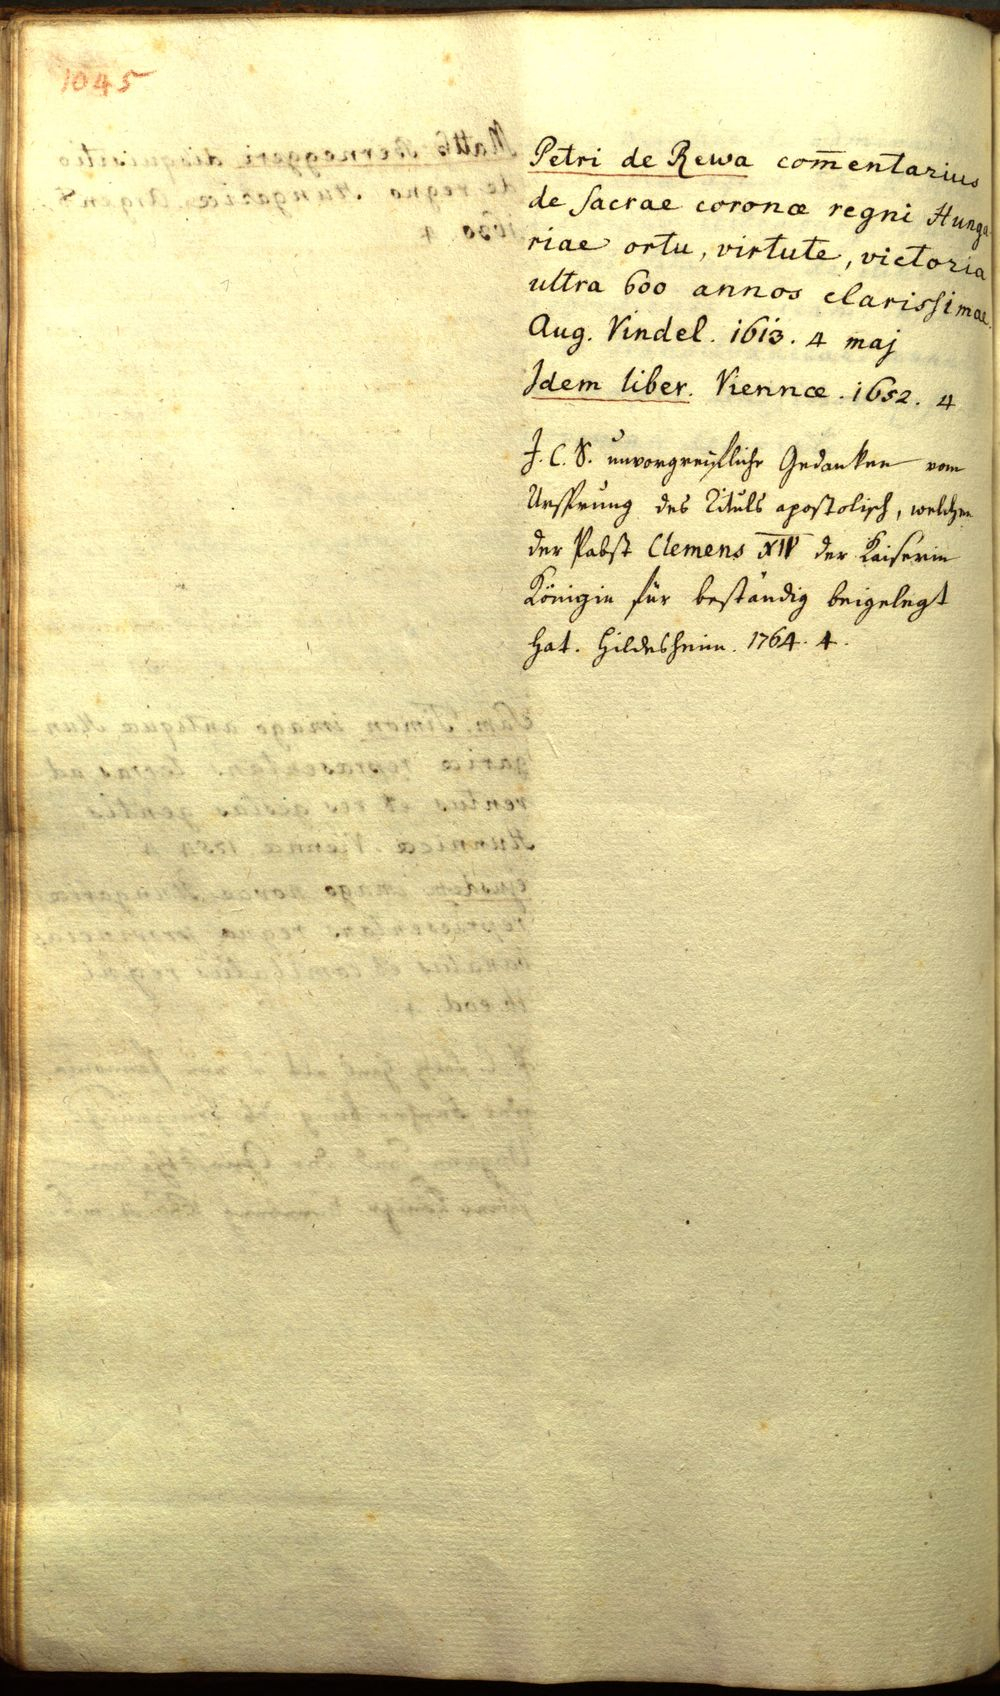 1045
Petri de Rewa com̄entarius
de sacrae coronæ regni Hunga
riae ortu, virtute, victoria
ultra 600 annos clarissimae.
Aug. Vindel. 1613. 4 maj
Idem liber. Viennæ. 1652. 4
J. C. S. unvorgreiffliche Gedanken vom
Ursprung des Tituls apostolisch, welchen
der Pabst Clemens XIV der Kaiserin
Königin für beständig beigelegt
hat. Hildesheim. 1764. 4.